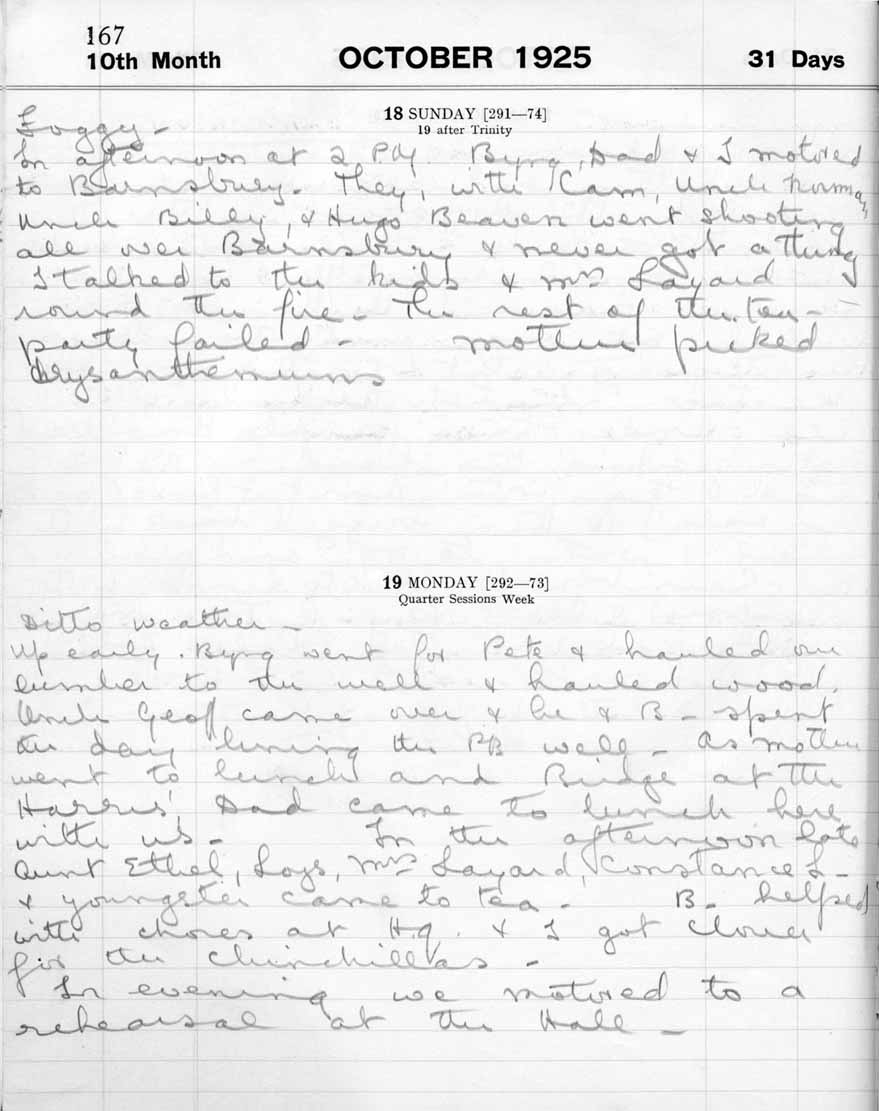 167
10th Month OCTOBER 1925 31 Days
18 SUNDAY [291—74]
19 after Trinity
Foggy -
In afternoon at 2 P.M. Byng, Dad & I motored
to Barnsbury. They, with Cam, Uncle Norman,
Uncle Billy, & Hugo Beaven went shooting
all over Barnsbury & never got a thing
I talked to the kids & Mrs Layard
round the fire - The rest of the tea -
party failed - Mother picked
chrysanthemums
19 MONDAY [292—73]
Quarter Sessions Week
Ditto weather -
Up early. Byng went for Pete & hauled our
lumber to the well & hauled wood.
Uncle Geoff came over & he & B - spent
the day lining the PB well - As Mother
went to lunch and Bridge at the
Harris' Dad came to lunch here
with us - In the afternoon late
Aunt Ethel, Loys, Mrs Layard, Constance L -
& youngster came to tea - B. helped
with chores at H.Q. & I got clover
for the chinchillas -
In evening we motored to a
rehearsal at the Hall -